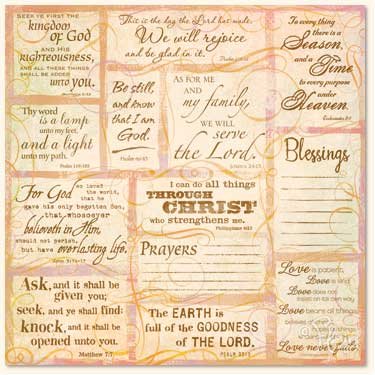 SEEK YE FIRST THE
kingdom
of God
AND HIS
righteousness,
AND ALL THESE THINGS
SHALL BE ADDED
unto you.
Matthew 6:33
This is the day the Lord hath made.
We will rejoice
and be glad in it.
Psalm 118:24
To every thing
there is a
Season,
and a
Time
to every
purpose
under
Heaven.
Ecclesiastes 3:1
Thy word
is a lamp
unto my feet,
and a light
unto my path.
Psalm 119:105
Be still,
and know
that I am
God.
Psalm 46:10
AS FOR ME
and
my family,
WE WILL
serve
the Lord.
Joshua 24:15
Blessings
For God so loved
the world,
that he
gave his only begotten Son,
that whosoever
believeth in Him,
should not perish,
but have everlasting life.
John 3:16
I can do all things
THROUGH
CHRIST
who strengthens me.
Philippians 4:13
Prayers
Ask, and it shall be
given you;
seek, and ye shall find;
knock, and it shall be
opened unto you.
Matthew 7:7
The EARTH is
full of the GOODNESS
OF THE LORD.
PSALM 33:5
Love is patient,
Love is kind
Love does not
insist on its own way.
Love bears all things,
believes all things,
hopes all things